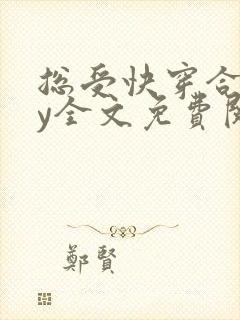 总受快穿合
y全文免費阅
鄭賢